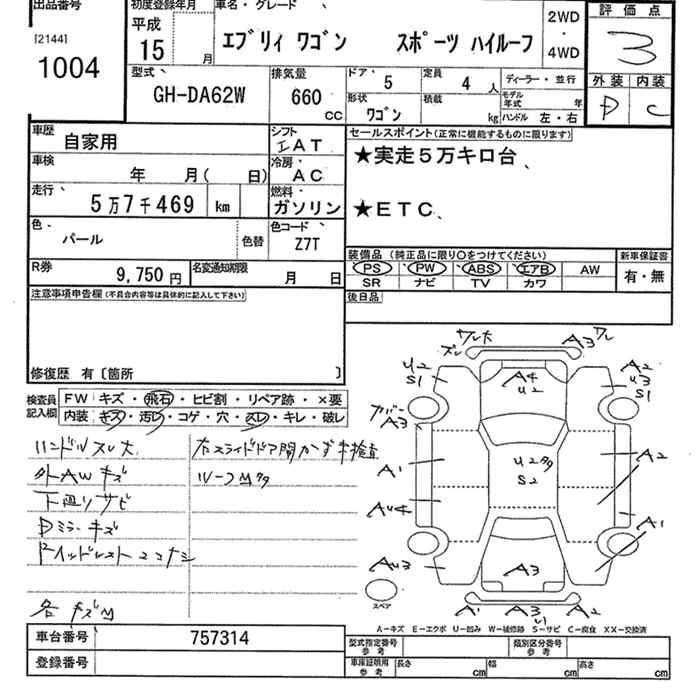 出品番号
[2144]
1004
初度登録年月
平成
15 月
車名・グレード
エブリィ ワゴン スポーツ ハイルーフ
2WD
・
4WD
評価点
3
外装 内装
D C
型式
GH-DA62W
排気量
660 CC
ドア 5
定員 4 人
ディーラー・並行
形状 ワゴン
積載 kg
モデル年式 年
ハンドル 左・右
車歴 自家用
シフト AT
車検 年 月( 日)
冷房 AC
走行 5万7千469 km
燃料 ガソリン
色 パール
色替
色コード Z7T
R券 9,750円
名変通知期限 月 日
セールスポイント(正常に機能するものに限ります)
★実走5万キロ台
★ETC
装備品 (純正品に限り○をつけてください)
新車保証書
PS PW ABS エアB AW
SR ナビ TV カワ
有・無
後日品
注意事項申告欄(不具合内容等は具体的に記入して下さい)
修復歴 有〔箇所 〕
検査員記入欄
FW キズ・飛石・ヒビ割・リペア跡・×要
内装 キズ・汚レ・コゲ・穴・スレ・キレ・破レ
ハンドルスレ大
外AWキズ
下廻リサビ
Dミラーキズ
各キズM
右スライドドア開かず未検査
ルーフM多
ズレ
ワレ大
A3
ワレ
U2
S1
A4
U2
A2
U3
S1
カバー
A3
A1
U2多
S2
A2
AU4
A1
AU3
A3
スペア
A1
A3
U1
A2
A-キズ E-エクボ U-凹み W-補修跡 S-サビ C-腐食 XX-交換済
車台番号 757314
登録番号
型式指定番号 参考
類別区分番号 参考
車庫証明用 参考
長さ cm
幅 cm
高さ cm